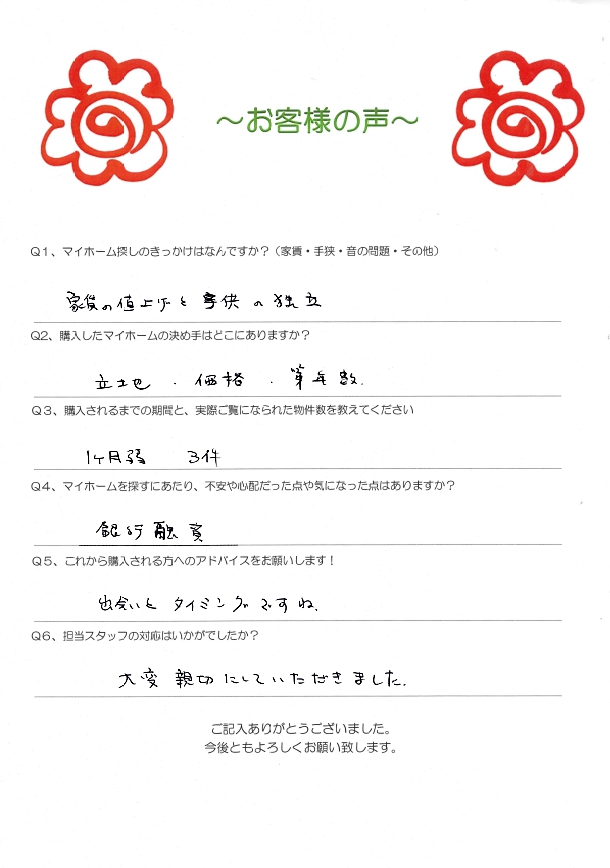 ～お客様の声～
Q1、マイホーム探しのきっかけはなんですか？（家賃・手狭・音の問題・その他）
家賃の値上げと子供の独立
Q2、購入したマイホームの決め手はどこにありますか？
立地・価格・築年数.
Q3、購入されるまでの期間と、実際ご覧になられた物件数を教えてください
1ヶ月弱 3件
Q4、マイホームを探すにあたり、不安や心配だった点や気になった点はありますか？
銀行融資
Q5、これから購入される方へのアドバイスをお願いします！
出会いとタイミングですね.
Q6、担当スタッフの対応はいかがでしたか？
大変親切にしていただきました.
ご記入ありがとうございました。
今後ともよろしくお願い致します。